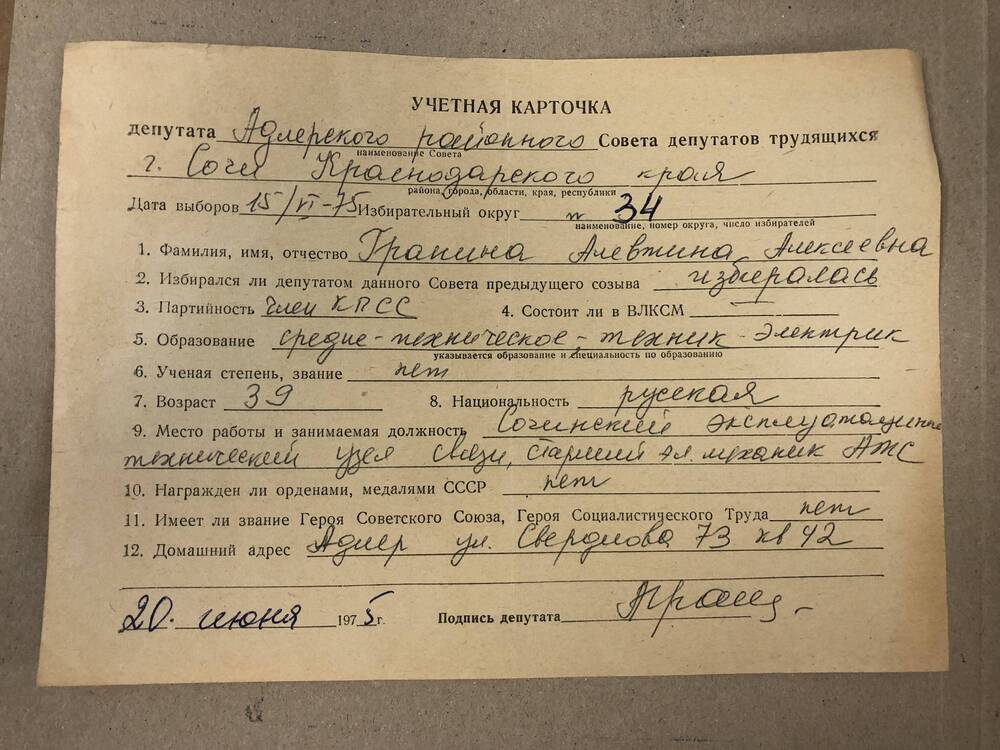 УЧЕТНАЯ КАРТОЧКА
депутата Адлерского районного Совета депутатов трудящихся
наименование Совета
г. Сочи Краснодарского края
района, города, области, края, республики
Дата выборов 15/VI-75 Избирательный округ № 34
наименование, номер округа, число избирателей
1. Фамилия, имя, отчество Гранина Алевтина Алексеевна
2. Избирался ли депутатом данного Совета предыдущего созыва избиралась
3. Партийность член КПСС 4. Состоит ли в ВЛКСМ —
5. Образование средне-техническое-техник-электрик
указывается образование и специальность по образованию
6. Ученая степень, звание нет
7. Возраст 39 8. Национальность русская
9. Место работы и занимаемая должность Сочинский эксплуатационно
технический узел связи, старший эл. механик АТС
10. Награжден ли орденами, медалями СССР нет
11. Имеет ли звание Героя Советского Союза, Героя Социалистического Труда нет
12. Домашний адрес Адлер ул. Свердлова 73 кв 42
20. июня 1975 г. Подпись депутата